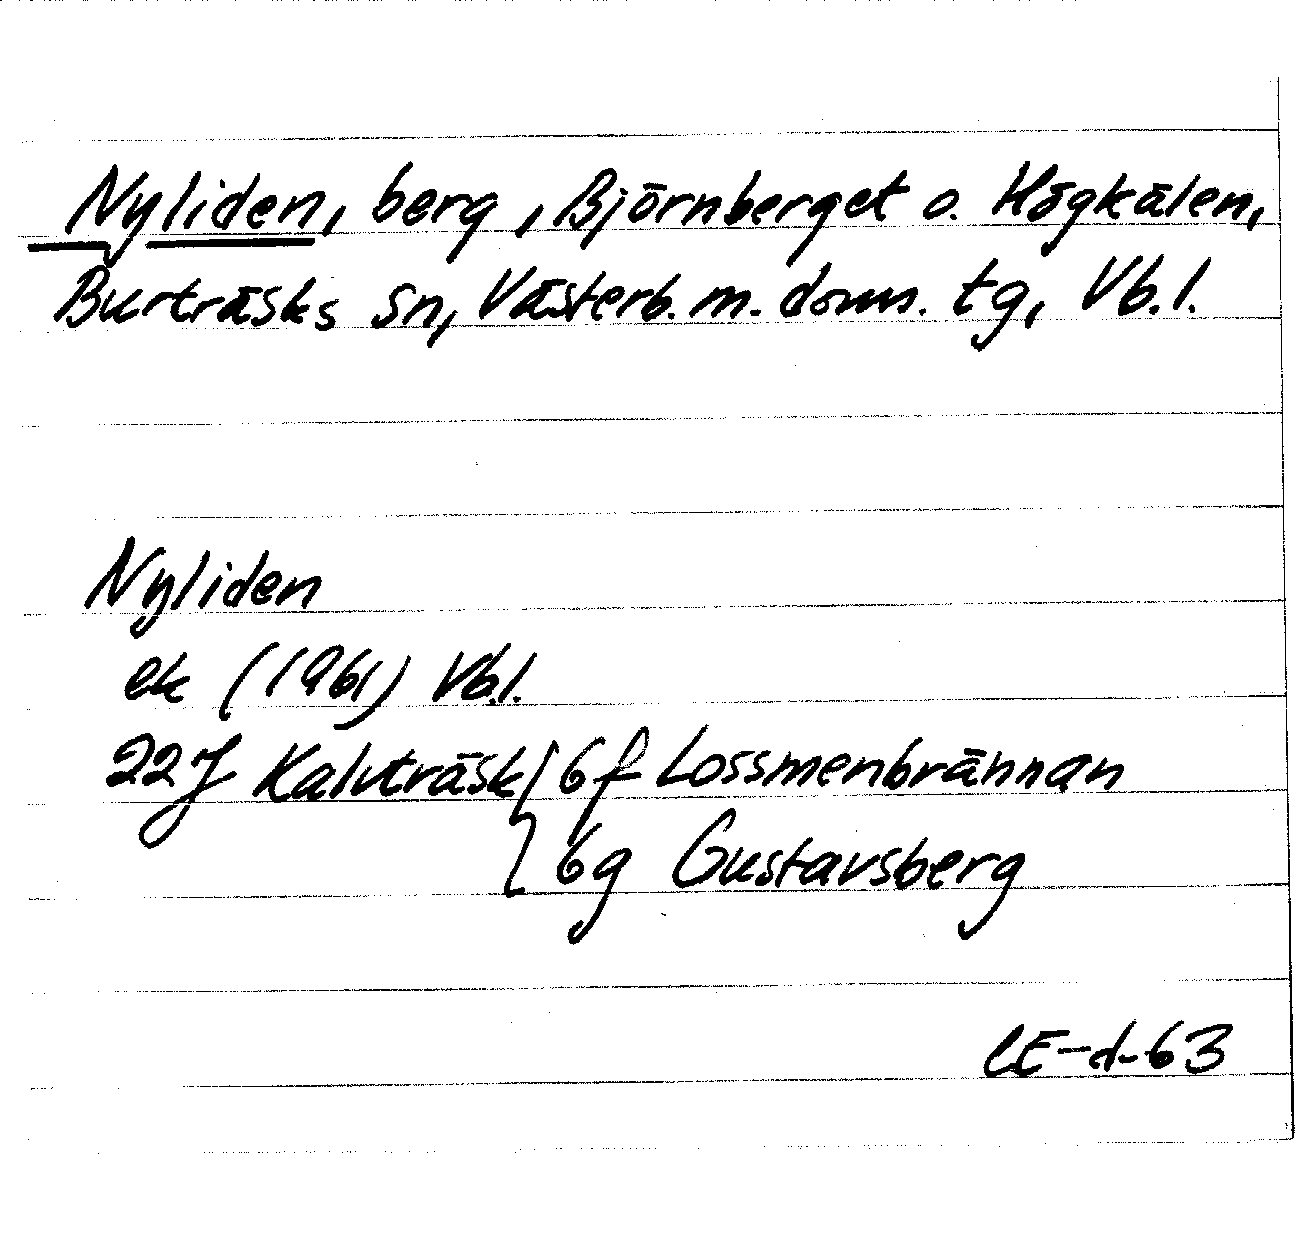 Nyliden, berg, Björnberget o. Högkälen,
Burträsks sn, Västerb. m. doms. tg, Vb.l.
Nyliden
ek (1961) Vb.l.
22J Kalvträsk { 6f Lossmenbrännan
6g Gustavsberg
CE-d-63